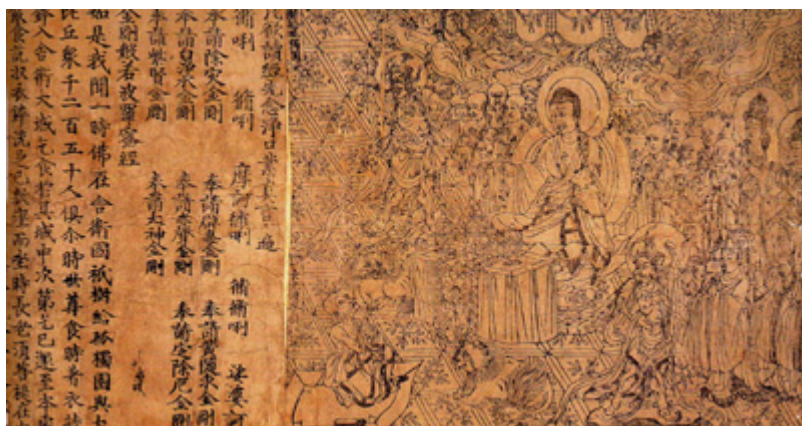 凡欲讀經先念淨口業真言一遍
脩唎 脩唎 摩訶脩唎 脩脩唎 娑婆訶
奉請除灾金剛 奉請辟毒金剛 奉請黄隨求金剛
奉請白淨水金剛 奉請赤聲金剛 奉請定除厄金剛
奉請紫賢金剛 奉請大神金剛
金剛般若波羅蜜經
如是我聞一時佛在舍衛國祇樹給孤獨園與大
比丘衆千二百五十人俱尒時世尊食時著衣持
鉢入舍衛大城乞食於其城中次第乞已還至本處
飯食訖收衣鉢洗足已敷座而坐時長老須菩提在